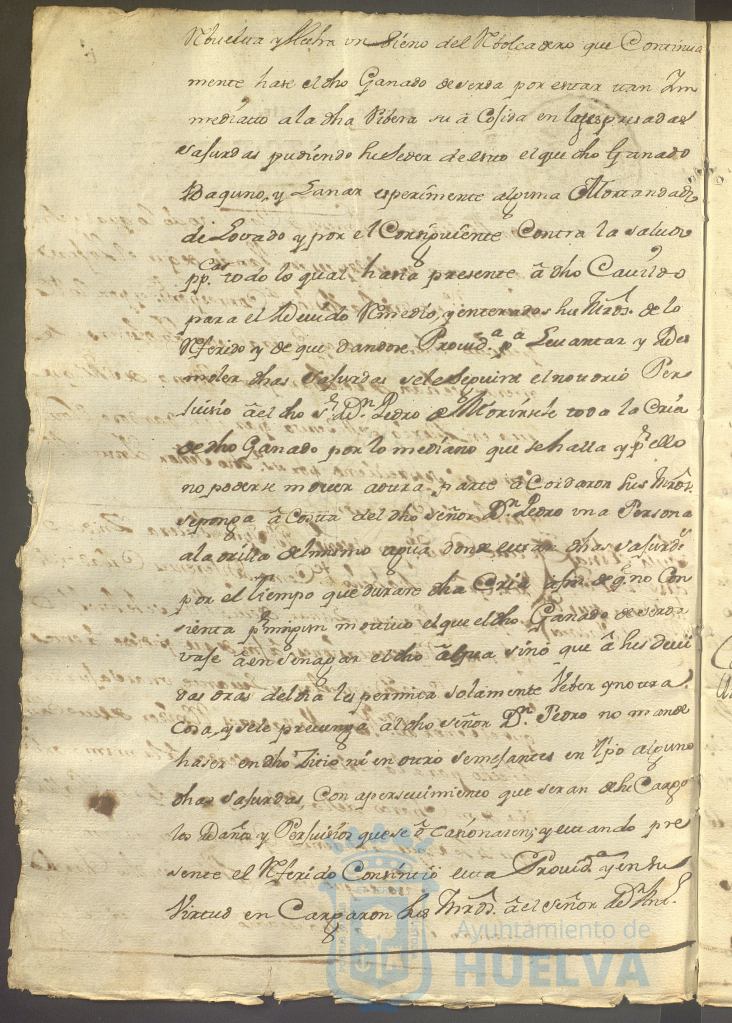 Rbuelta y hecha un Sieno del Rebolcadero que Continua
mente hase el dho Ganado de serda por estar tan In
mediato a la dha Rivera su a Cojida en las espresadas
Sasurdas pudiendo suseder de esto el que dho Ganado
Baquno, y Lanar esperimente alguna Mortandad
de Lovado y por el Consiguiente Contra la salud
ppca. todo lo qual hasia presente â dho Cavildo
para el Devido Remedio, y enterados sus Mrds. de lo
Referido y de que dandose Provida. pa. Levantar y Des
moler dhas Sasurdas se le seguira el notorio Per
Juisio â el dho Sr. Dn. Pedro de Morirsele toda la Cria
de dho Ganado por lo mediano que se halla y pr. ello
no poderse mover a otra parte â Cordaron sus Mrds.
se ponga â Costa del dho Señor Dn. Pedro una Persona
a la orilla del mismo agua donde estan dhas Sasurds.
por el tiempo que durare dha Cria afin de q. no Con
sienta pr. ningun motivo el que el dho Ganado de serda
vase â en senagar el dho âgua sino que â sus devi
das oras del dia les permita solamente Veber y no otra
Cosa, y se le prevenga al dho Señor Dn. Pedro no mande
haser en dho Sitio ni en otro Semejantes en tpo alguno
dhas Sasurdas, Con apersevimiento que seran de su Cargo
los Daños y Perjuisios que se ô Casionaren; y estando pre
sente el Referido Consintio esta Provida. y en su
Virtud en Cargaron sus Mrds. â el Señor Dn. Ml.
Ayuntamiento de
HUELVA